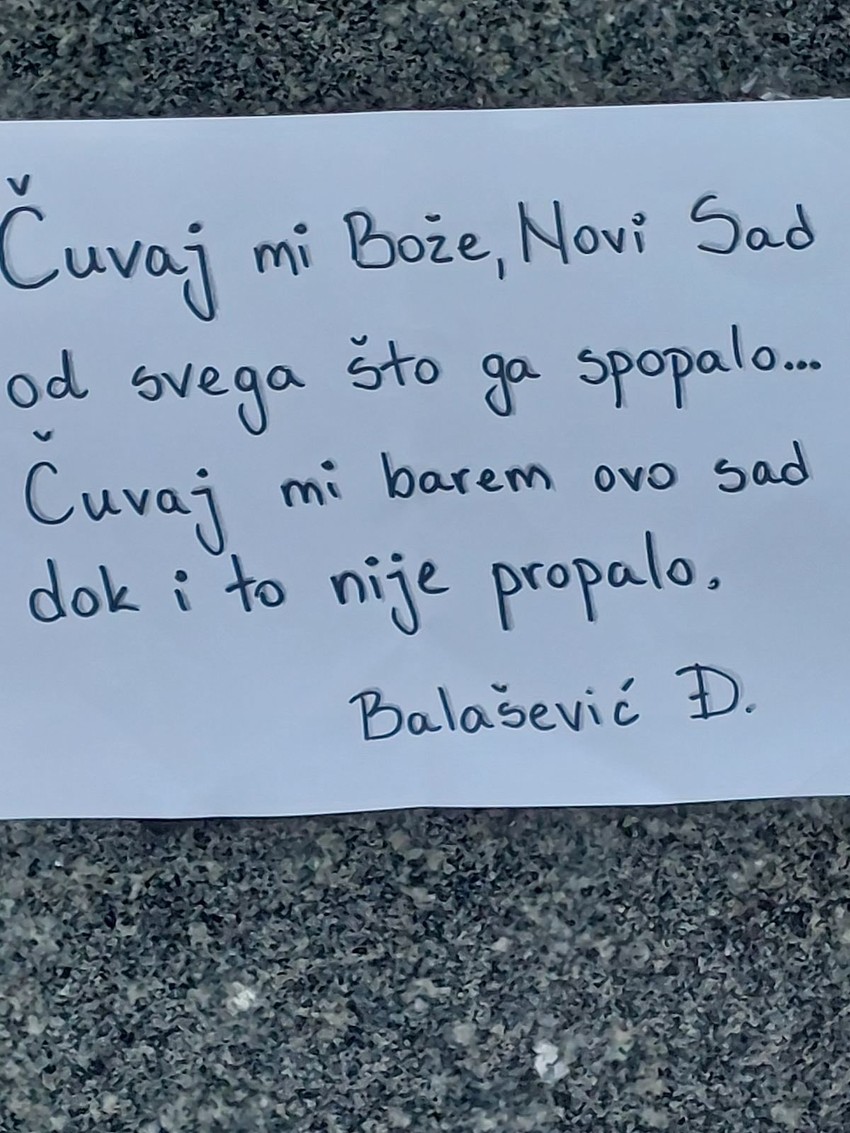 Čuvaj mi Bože, Novi Sad
od svega što ga spopalo...
Čuvaj mi barem ovo sad
dok i to nije propalo.
Balašević Đ.